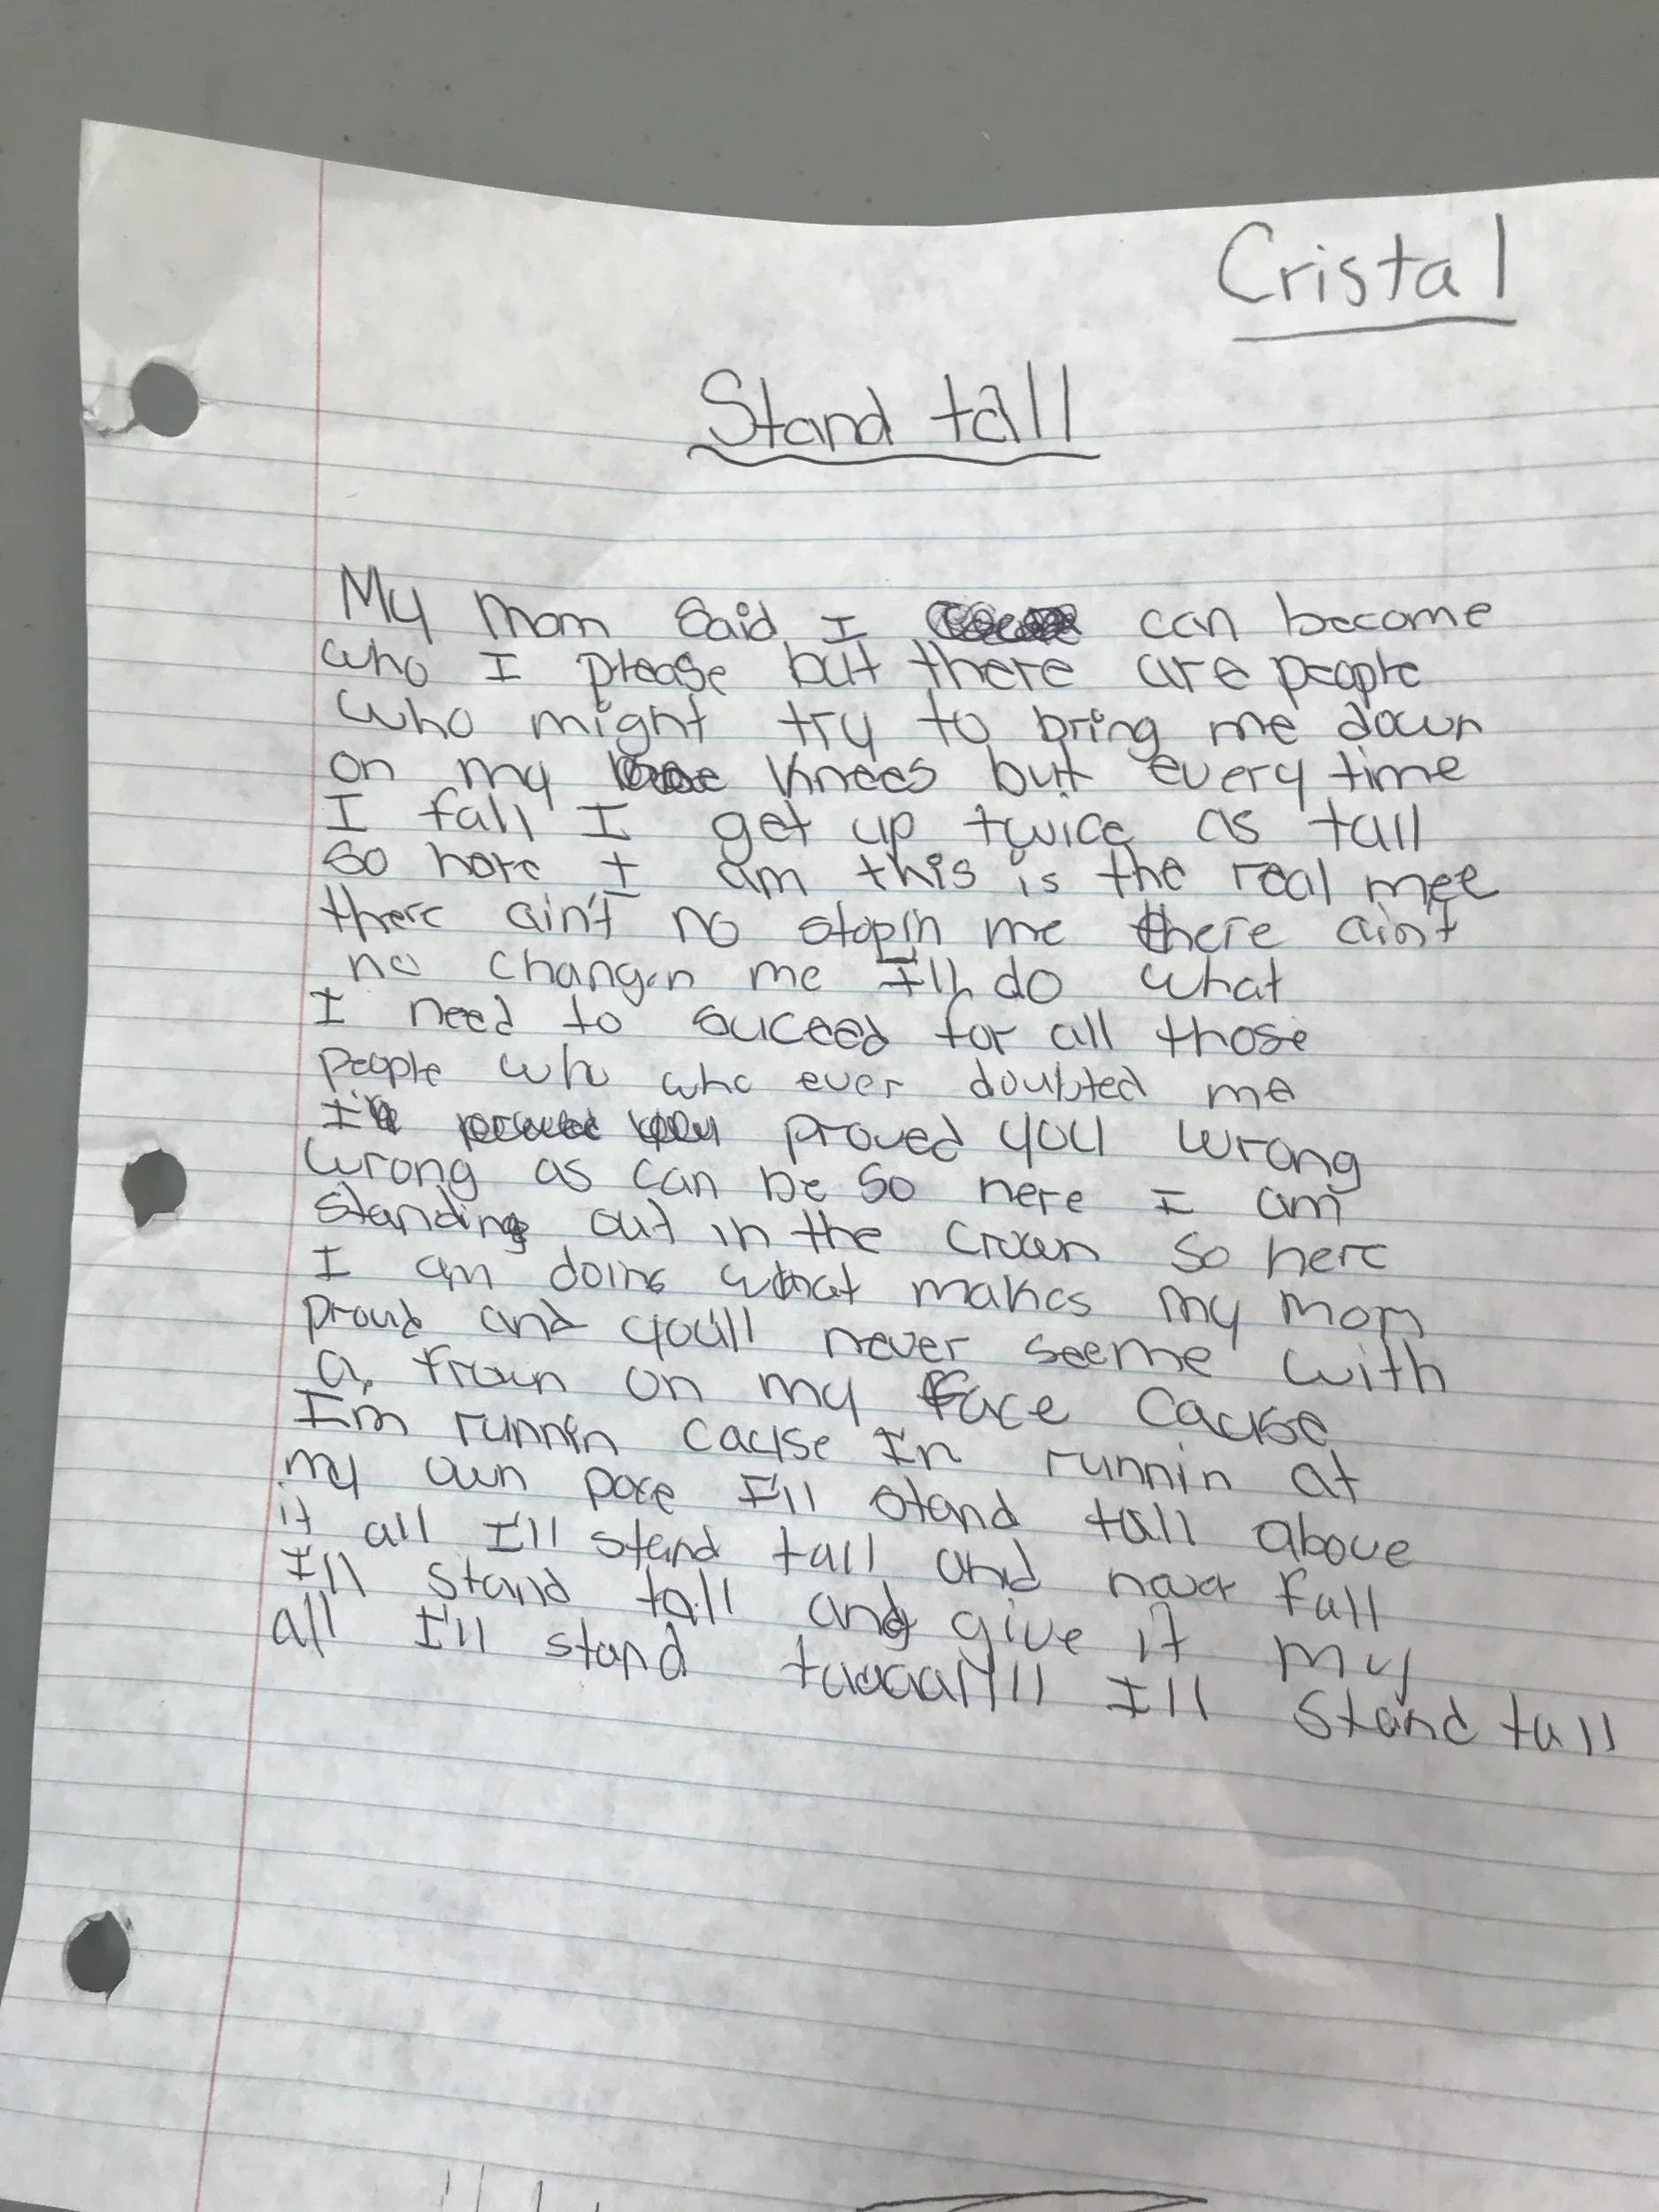 Cristal
Stand tall
My mom said I can become
who I please but there are people
who might try to bring me down
on my knees but every time
I fall I get up twice as tall
so here I am this is the real mee
there ain't no stopin me there ain't
no changin me I'll do what
I need to suceed for all those
people who who ever doubted me
I proved you wrong
wrong as can be so here I am
standing out in the crown so here
I am doing what makes my mom
proud and you'll never seeme with
a frown on my face cause
Im runnin cause Im runnin at
my own pace I'll stand tall above
it all I'll stand tall and never fall
I'll stand tall and give it my
all I'll stand taaaallll I'll stand tall